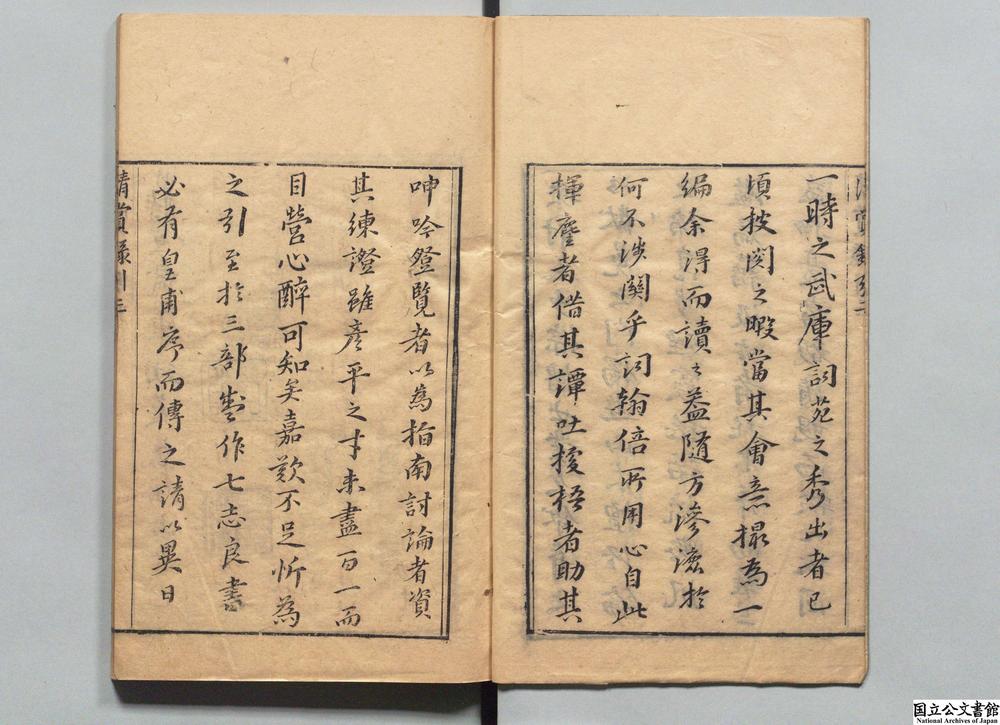 清賞錄引二
一時之武庫詞苑之秀出者已
頃披閱之暇當其會意撮為一
編余得而讀之益隨方滲漉於
何不涉關乎詞翰倍所用心自此
揮麈者借其譚吐援梧者助其
呻吟登覽者以為指南討論者資
其練證雖彥平之才未盡百一而
目營心醉可知矣嘉歎不足忻為
之引至於三部剏作七志良書
必有皇甫序而傳之請以異日
清賞錄引二
国立公文書館
National Archives of Japan